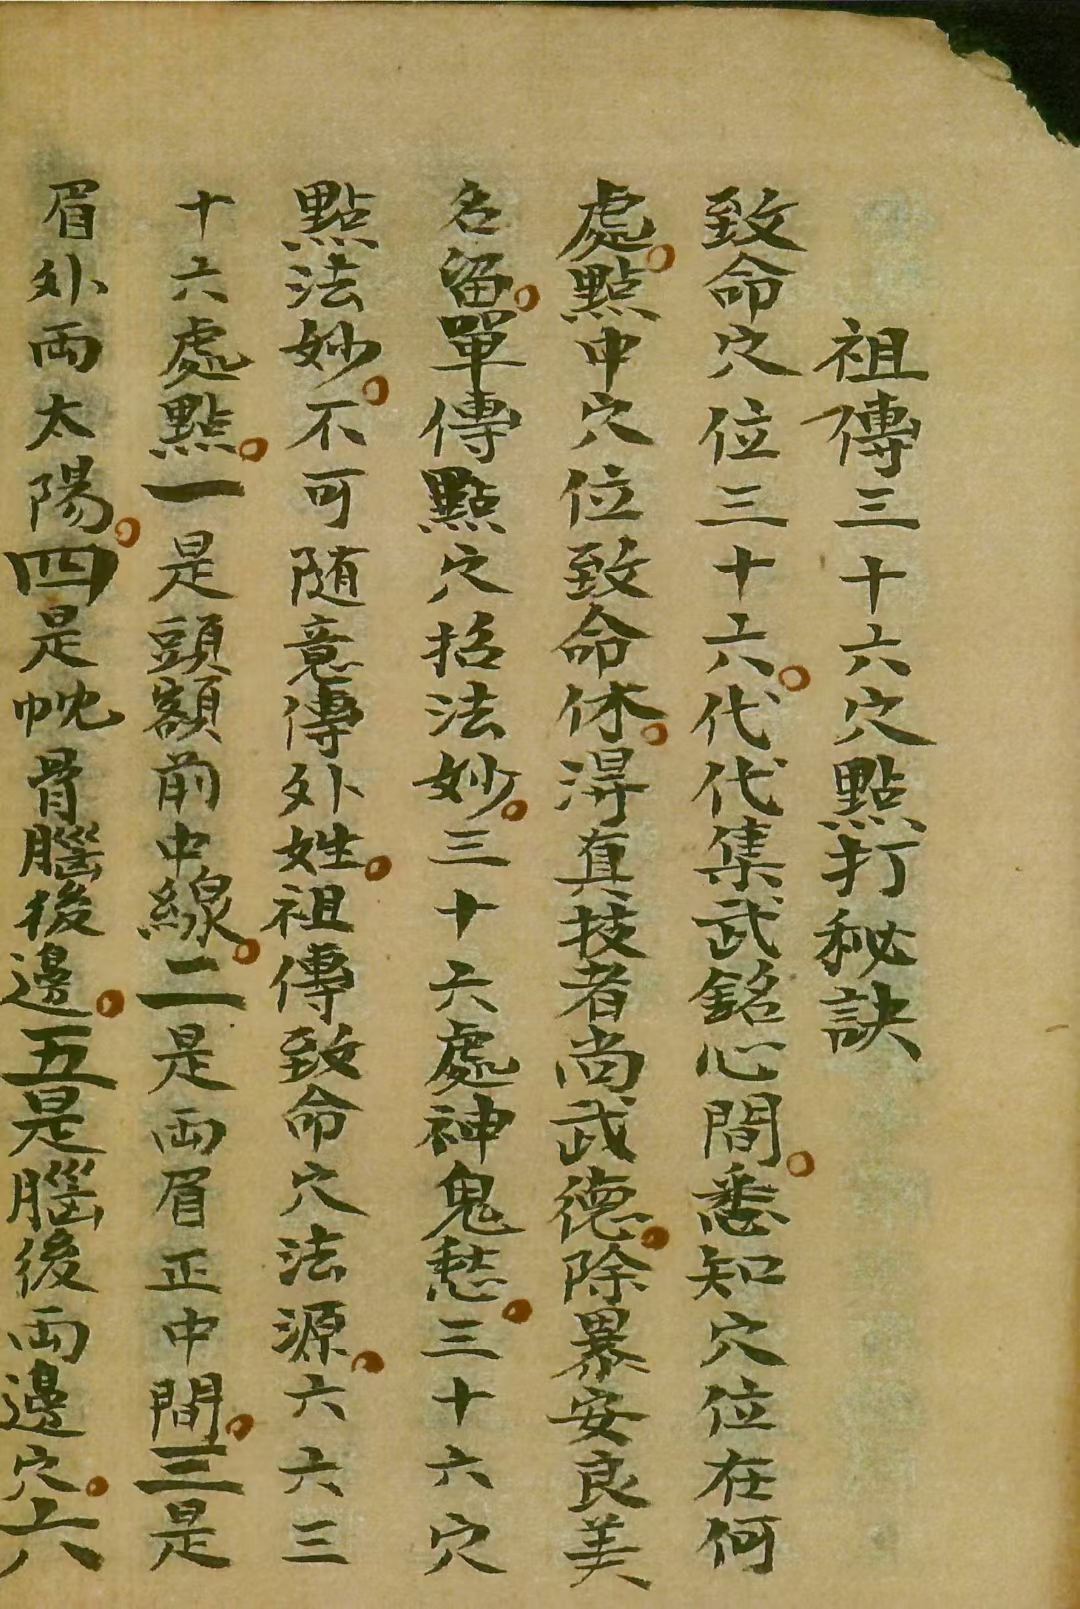 祖傳三十六穴點打秘訣
致命穴位三十六。代代集武銘心間。悉知穴位在何
處。點中穴位致命休。淂真技者尚武德。除暴安良美
名留。單傳點穴招法妙。三十六處神鬼愁。三十六穴
點法妙。不可随意傳外姓。祖傳致命穴法源。六六三
十六處點。一是頭額前中線。二是両眉正中間。三是
眉外両太陽。四是枕骨腦後邊。五是腦後両邊穴。六